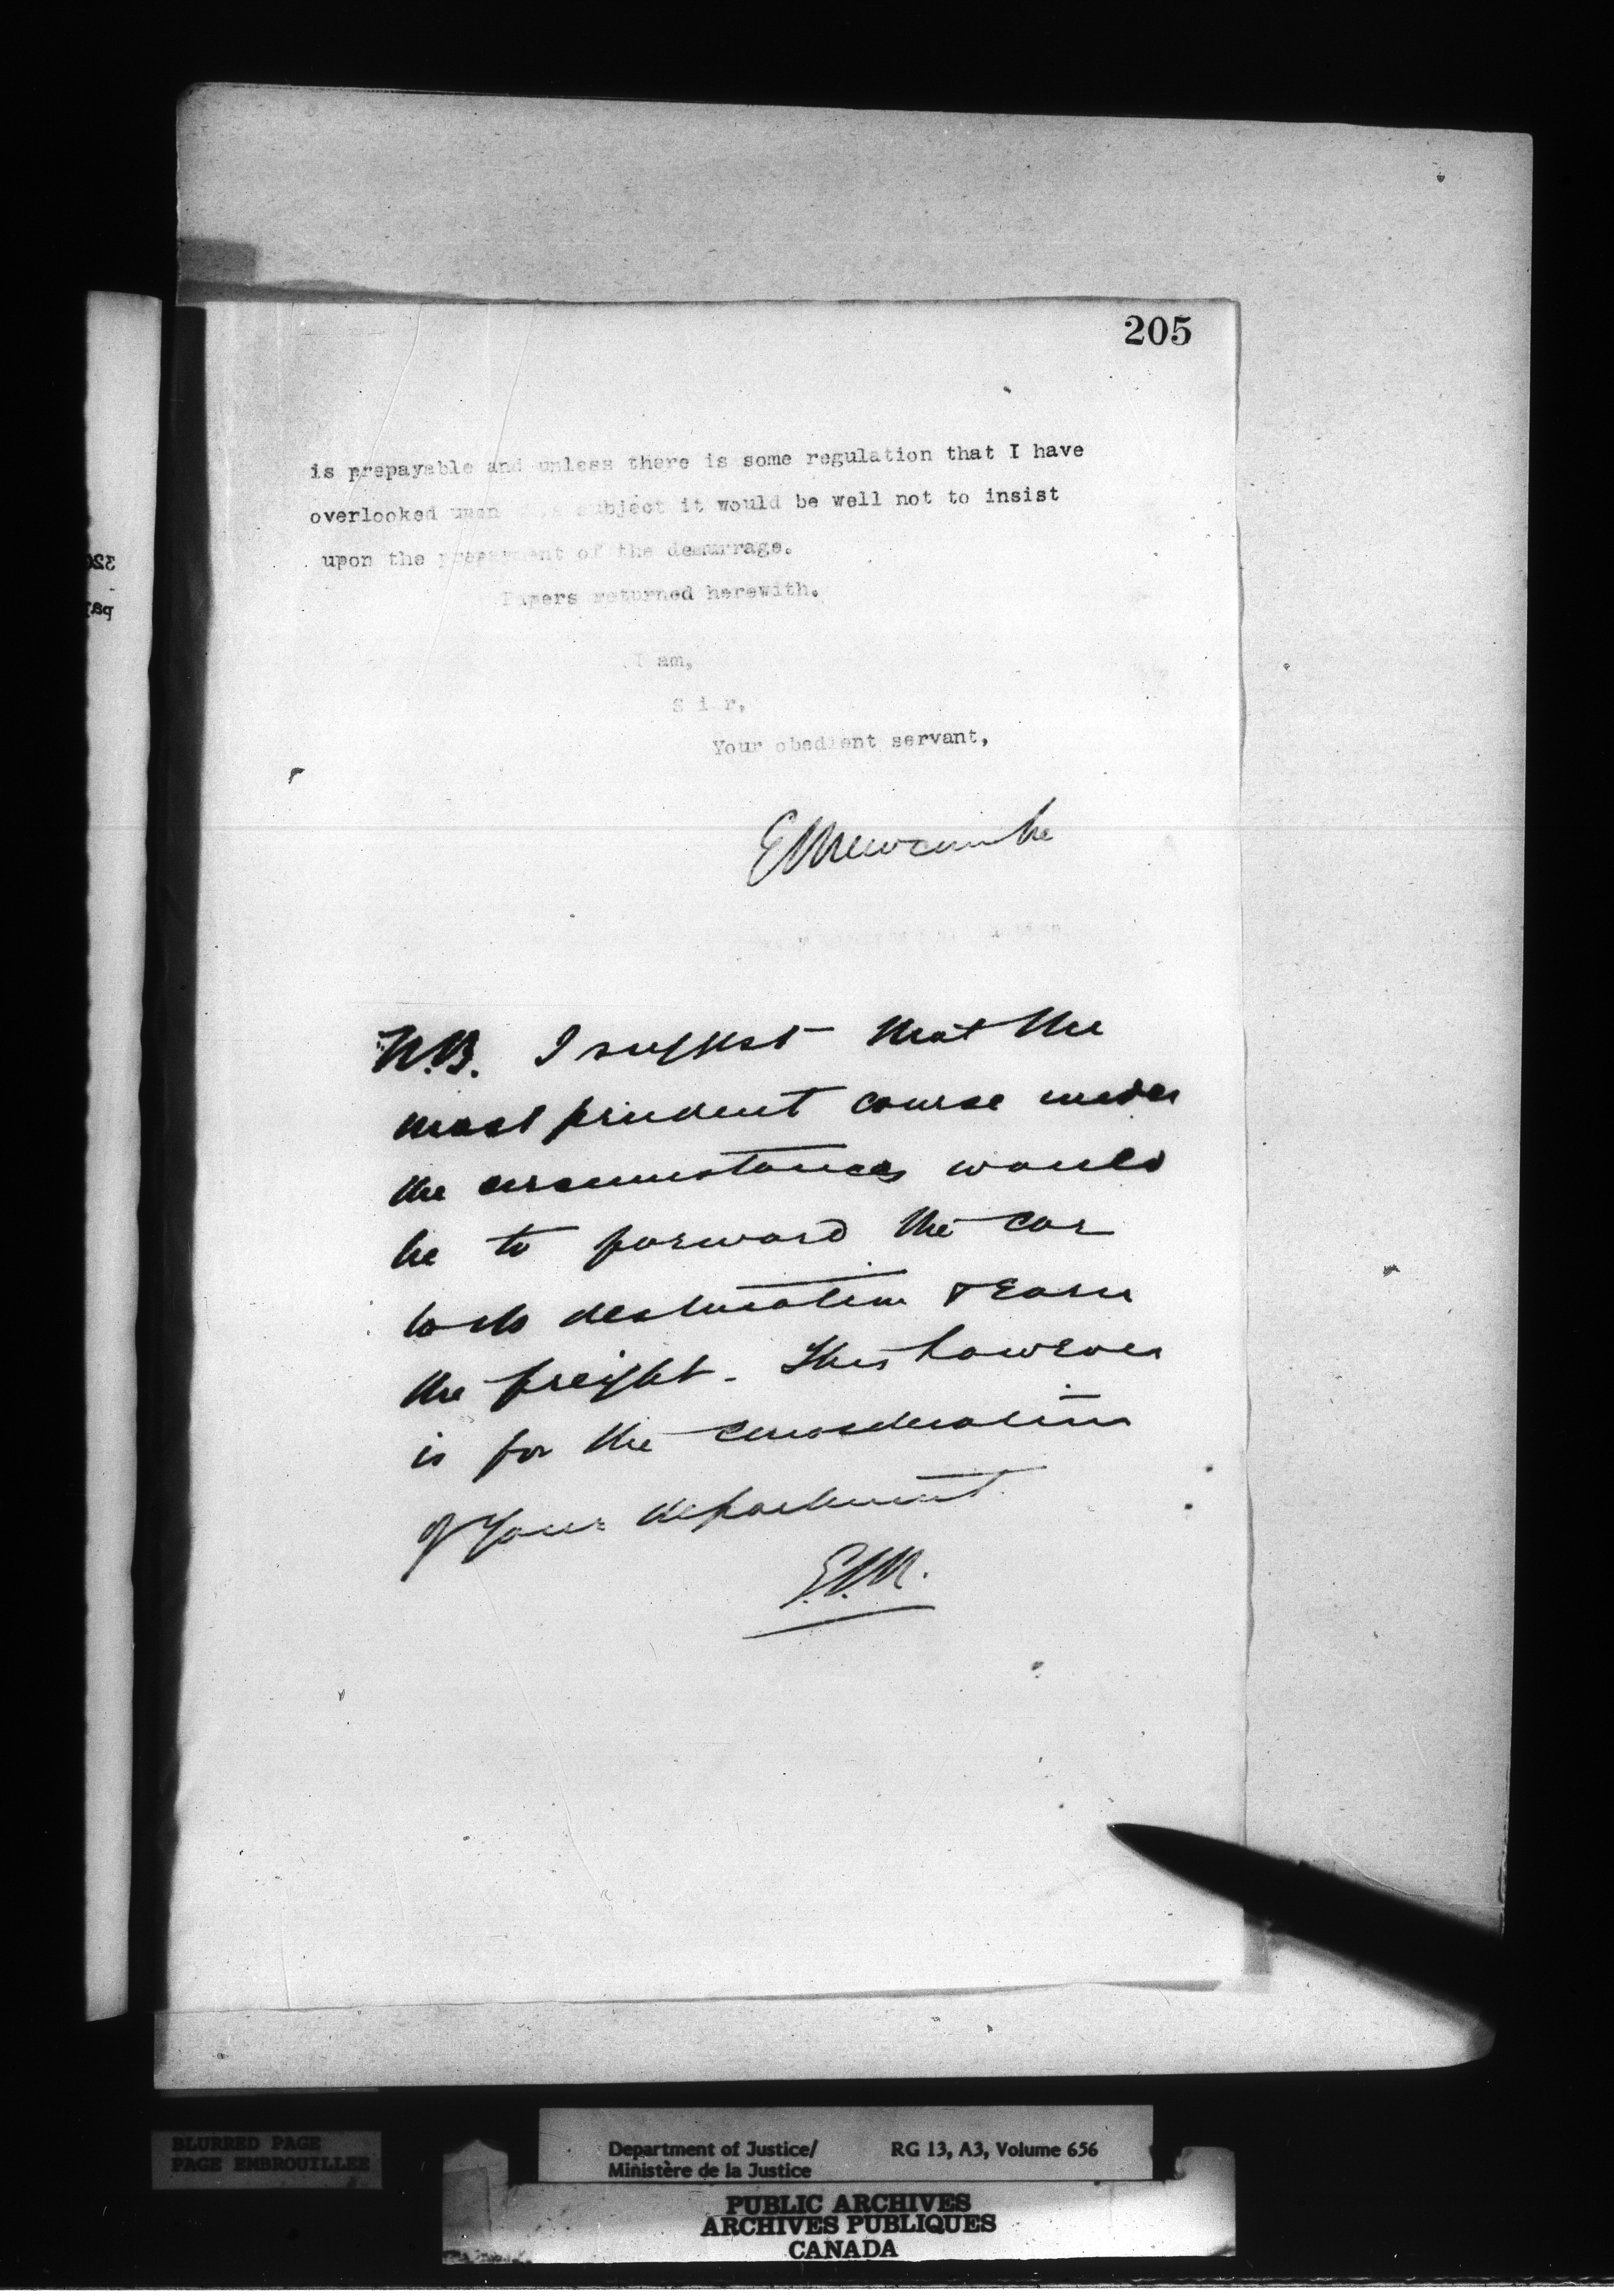 205
is prepayable and unless there is some regulation that I have
overlooked upon subject it would be well not to insist
upon the prepayment of the demurrage.
Papers returned herewith.
I am,
S i r,
Your obedient servant,
E L Newcombe
N.B. I suggest that the
most prudent course under
the circumstances would
be to forward the car
to its destination & earn
the freight. This however
is for the consideration
of your department.
E.L.N.
BLURRED PAGE
PAGE EMBROUILLEE
Department of Justice/ RG 13, A3, Volume 656
Ministère de la Justice
PUBLIC ARCHIVES
ARCHIVES PUBLIQUES
CANADA